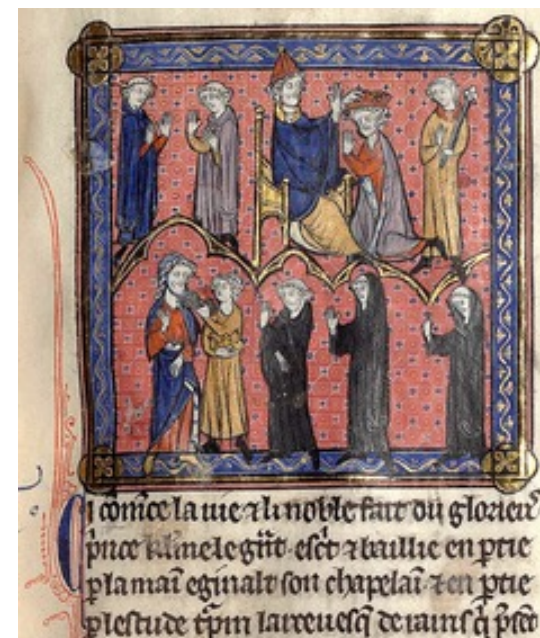 i cōmēce la uie ⁊ li noble fait du glorieus
prīce kllmele gñt. escͥt ⁊ baillie en ptie
p la mai eginalt son chapelaī ⁊ en ptie
p lestude tpm larreuesq̄ de rains q̄